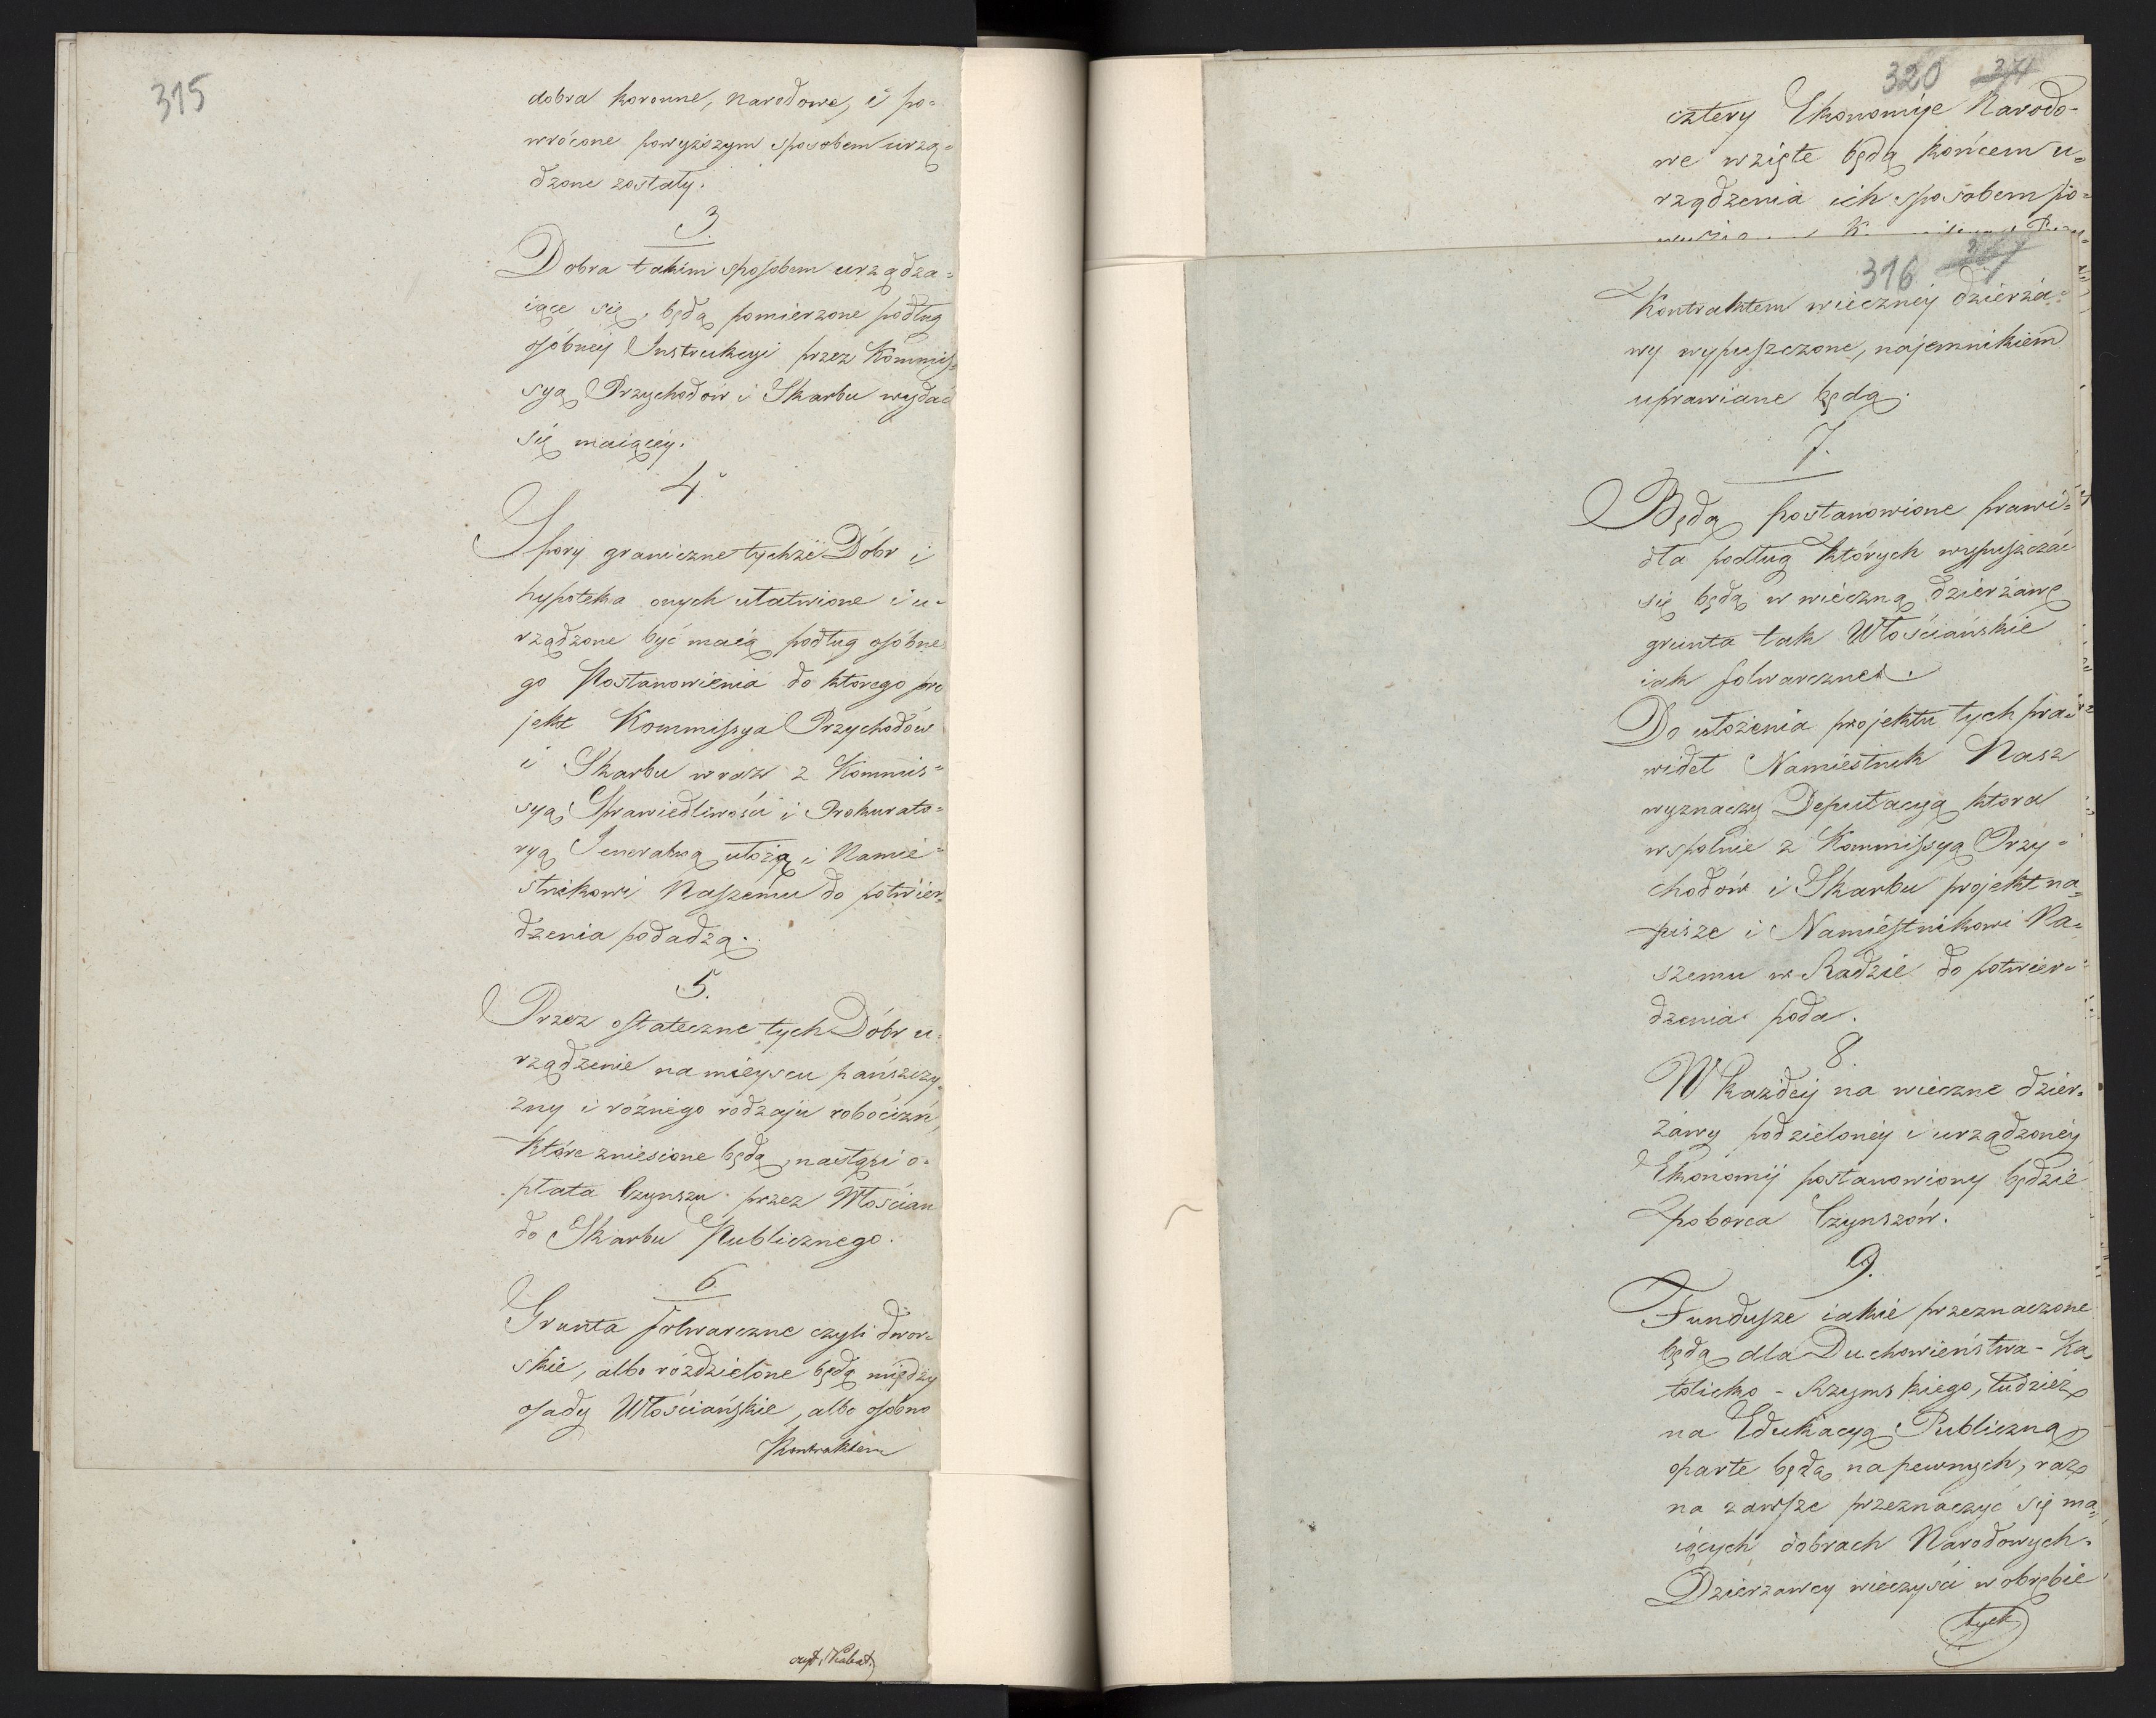 315
dobra koronne, narodowe, i po=
wrócone powyższym sposobem urzą=
dzone zostały.
3.
Dobra takim sposobem urządza=
iące się, będą pomierzone podług
osóbney Instrukcyi przez Kommis=
syą Przychodów i Skarbu wydać
się maiącéy.
4.
Spory graniczne tychże Dóbr i
hypoteka onych ułatwione i u=
rządzone być maią podług osóbne
go Postanowienia do ktorego pro
jekt Kommissya Przychodów
i Skarbu wraz z Kommis=
syą Sprawiedliwości i Prokurato=
ryą Jeneralną ułożą i Namie=
stnikowi Naszemu do potwier=
dzenia podadzą.
5.
Przez ostateczne tych Dóbr u=
rządzenie na mieyscu pańszczy=
zny i róznego rodzaju robocizn,
które zniesione będą, nastąpi o=
płata Czynszu przez Włościan
do Skarbu Publicznego.
6.
Grunta folwarczne czyli dwor=
skie, albo rozdzielone będą między
osady Włościańskie, albo osóbno
Kontraktem
320
cztery Ekonomije Narodo-
we wzięte będą końcem u=
rządzenia ich sposobem po=
316
Kontraktem wiecznéy dzierża=
wy wypuszczone, najemnikiem
uprawiane będą.
7.
Będą postanowione prawi=
dła podług których wypuszczać
się będą w wieczną dzierżawę
grunta tak Włościańskie
iak folwarczne.
Do ułożenia projektu tych pra=
wideł Namiestnik Nasz
wyznaczy Deputacyą ktora
wspolnie z Kommissyą Przy=
chodów i Skarbu projekt na=
pisze i Namiestnikowi Na=
szemu w Radzie do potwier=
dzenia poda.
8.
W każdéy na wieczne dzier=
żawy podzielonéy i urządzonéy
Ekonomij postanowiony będzie
poborca Czynszów.
9.
Fundusze iakie przeznaczone
będą dla Duchowieństwa-Ka=
tolicko-Rzymskiego, tudzież
na Edukacyą Publiczną
oparte będą na pewnych, raz
na zawsze przeznaczyć się ma=
iących dobrach Narodowych.
Dzierzawcy wieczyści w obrębie
tych